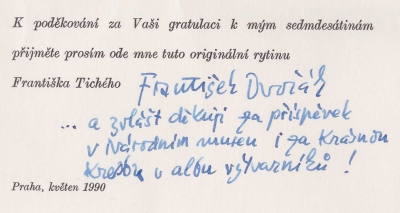 K poděkování za Vaši gratulaci k mým sedmdesátinám
přijměte prosím ode mne tuto originální rytinu
Františka Tichého František Dvořák
... a zvlášť děkuji za příspěvek
v Národním museu i za krásnou
kresbu v albu výtvarníků!
Praha, květen 1990